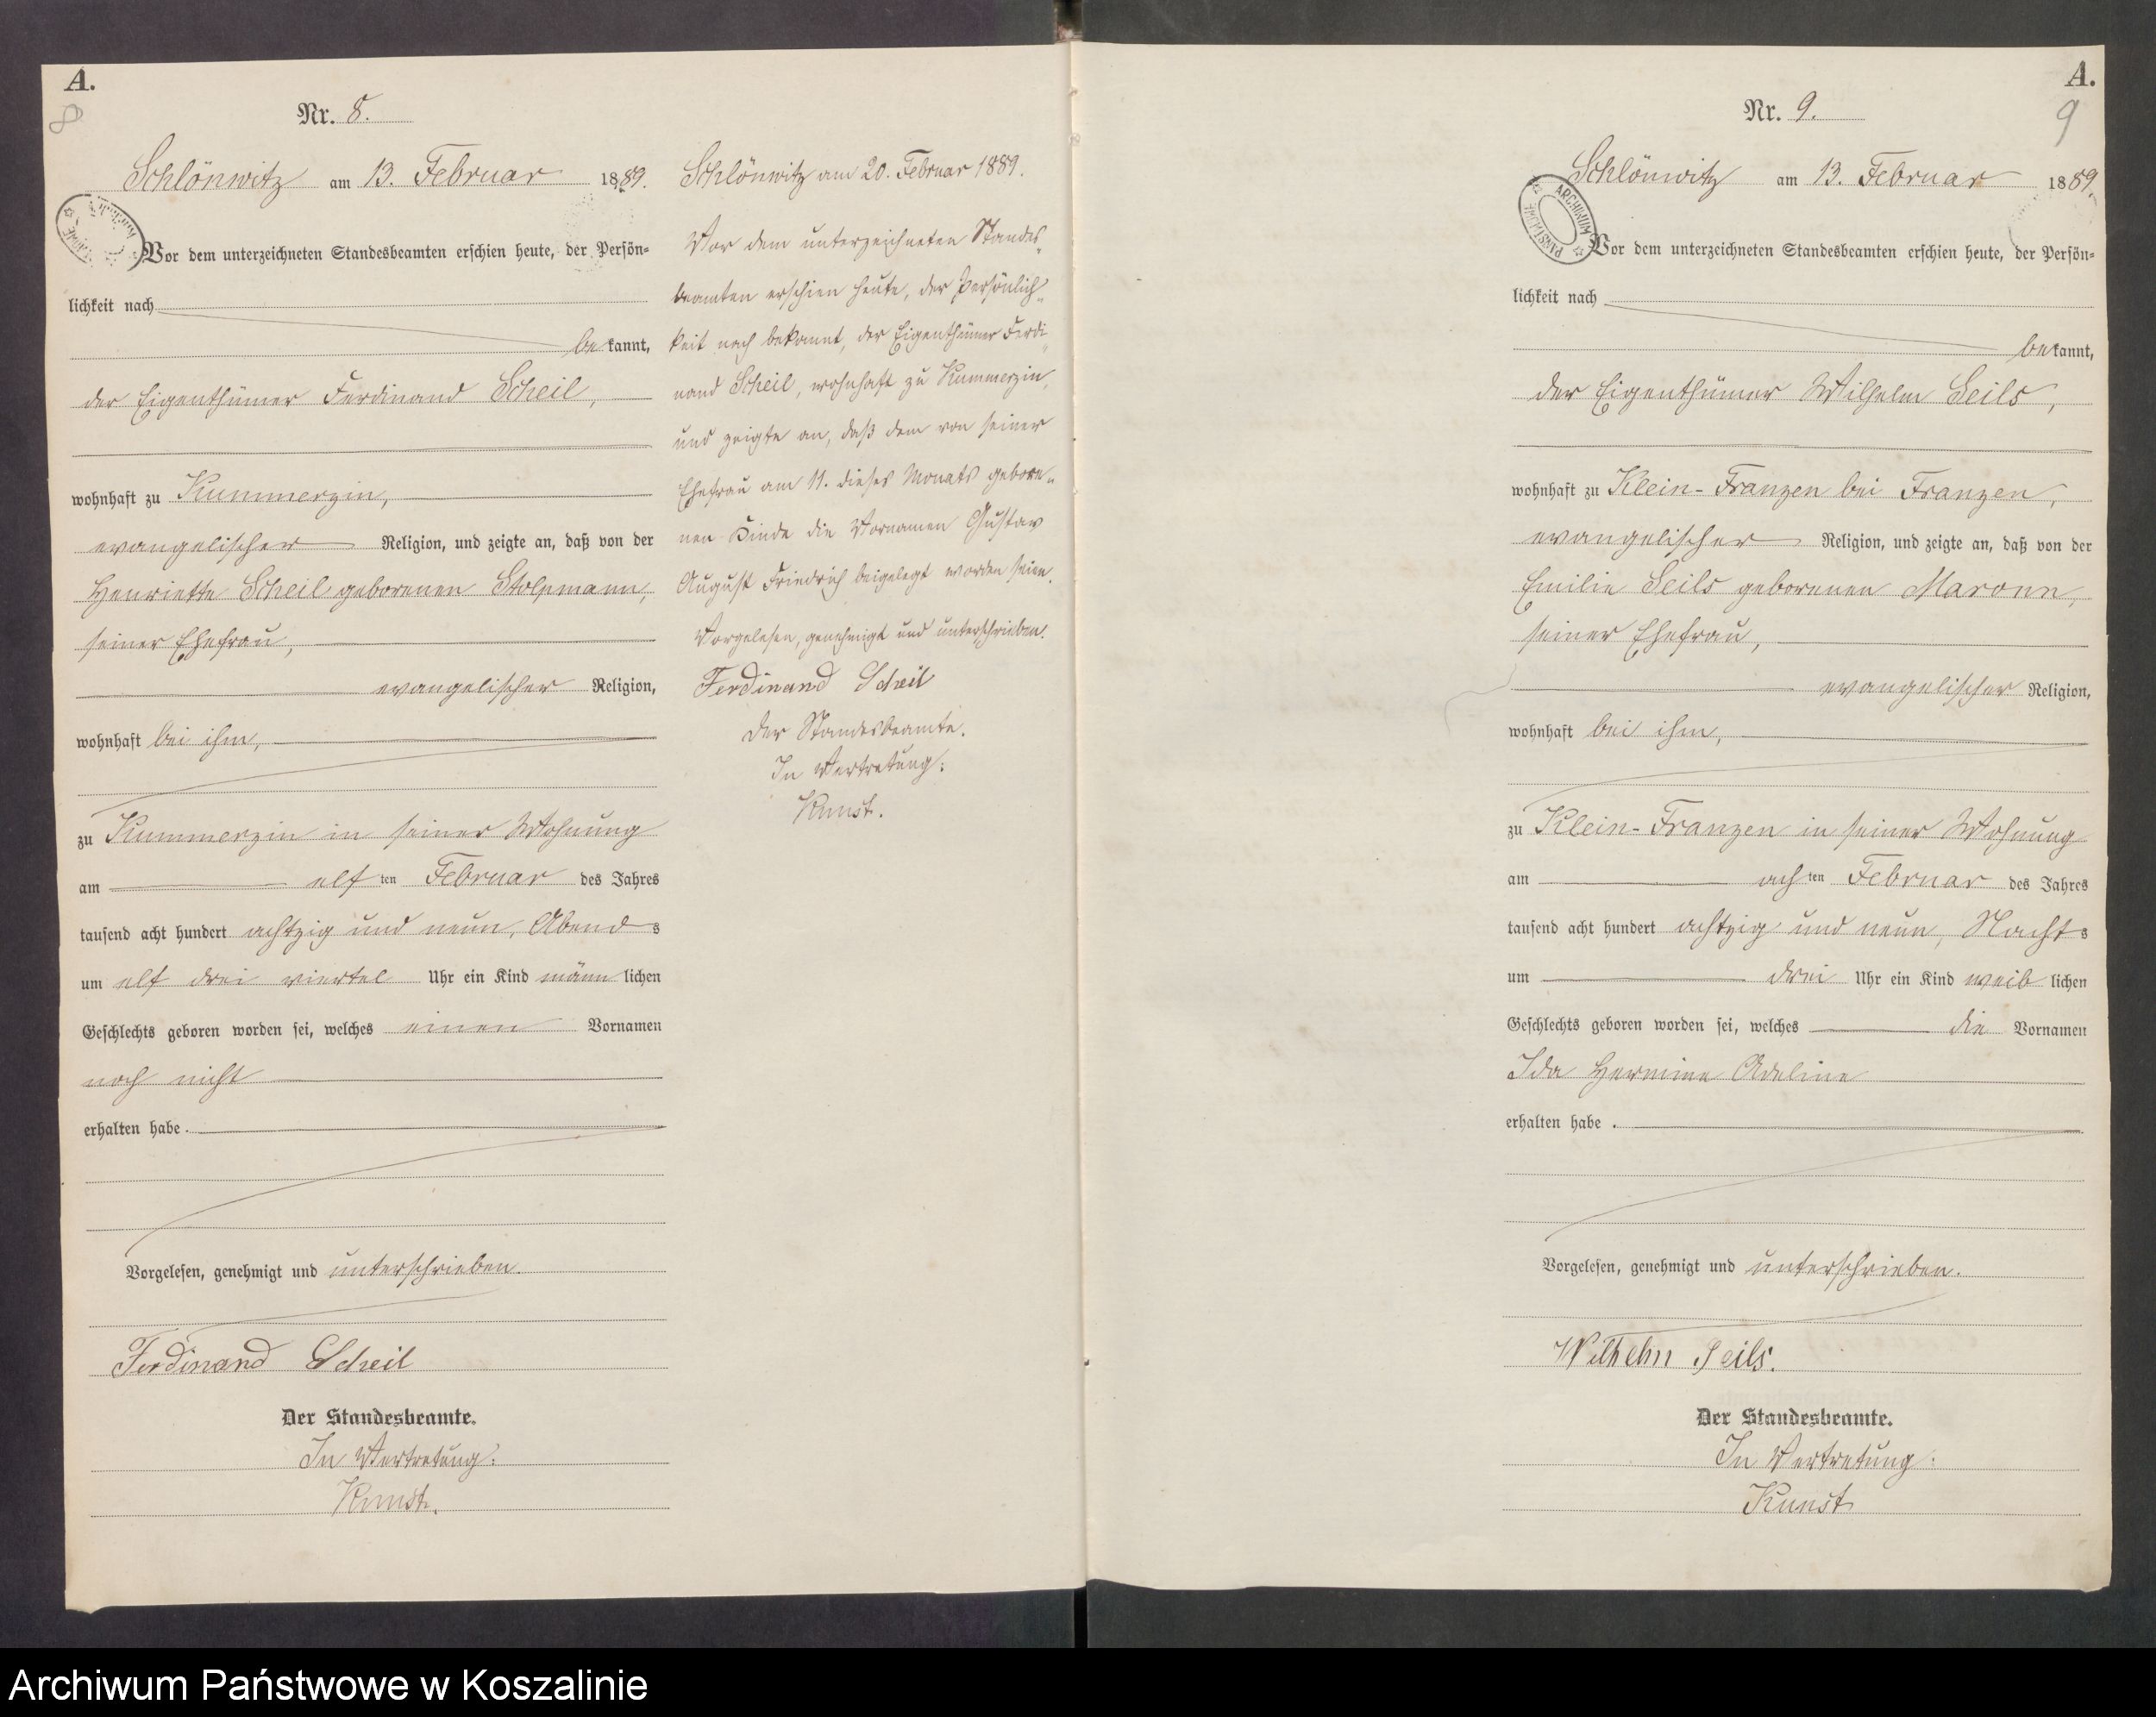 A.
8
Nr. 8.
Schlönwitz am 13. Februar 1889.
Vor dem unterzeichneten Standesbeamten erschien heute, der Persön-
lichkeit nach
bekannt,
der Eigenthümer Ferdinand Scheil,
wohnhaft zu Kummerzin,
evangelischer Religion, und zeigte an, daß von der
Henriette Scheil geborenen Stolpmann,
seiner Ehefrau,
evangelischer Religion,
wohnhaft bei ihm,
zu Kummerzin in seiner Wohnung
am elf ten Februar des Jahres
tausend acht hundert achtzig und neun, Abends
um elf drei viertel Uhr ein Kind männlichen
Geschlechts geboren worden sei, welches einen Vornamen
noch nicht
erhalten habe.
Vorgelesen, genehmigt und unterschrieben.
Ferdinand Scheil
Der Standesbeamte.
In Vertretung:
Kunst.
Schlönwitz am 20. Februar 1889.
Vor dem unterzeichneten Standes-
beamten erschien heute, der Persönlich-
keit nach bekannt, der Eigenthümer Ferdi-
nand Scheil, wohnhaft zu Kummerzin,
und zeigte an, daß dem von seiner
Ehefrau am 11. dieses Monats gebore-
nen Kinde die Vornamen Gustav
August Friedrich beigelegt worden seien.
Vorgelesen, genehmigt und unterschrieben.
Ferdinand Scheil
Der Standesbeamte.
In Vertretung:
Kunst.
A.
9
Nr. 9.
Schlönwitz am 13. Februar 1889.
ARCHIWUM PAŃSTWOWE
Vor dem unterzeichneten Standesbeamten erschien heute, der Persön-
lichkeit nach
bekannt,
der Eigenthümer Wilhelm Seils,
wohnhaft zu Klein-Franzen bei Franzen,
evangelischer Religion, und zeigte an, daß von der
Emilie Seils geborenen Maronn,
seiner Ehefrau,
evangelischer Religion,
wohnhaft bei ihm,
zu Klein-Franzen in seiner Wohnung
am ach ten Februar des Jahres
tausend acht hundert achtzig und neun, Nachts
um drei Uhr ein Kind weiblichen
Geschlechts geboren worden sei, welches die Vornamen
Ida Hermine Adeline
erhalten habe.
Vorgelesen, genehmigt und unterschrieben.
Wilhelm Seils.
Der Standesbeamte.
In Vertretung:
Kunst
Archiwum Państwowe w Koszalinie